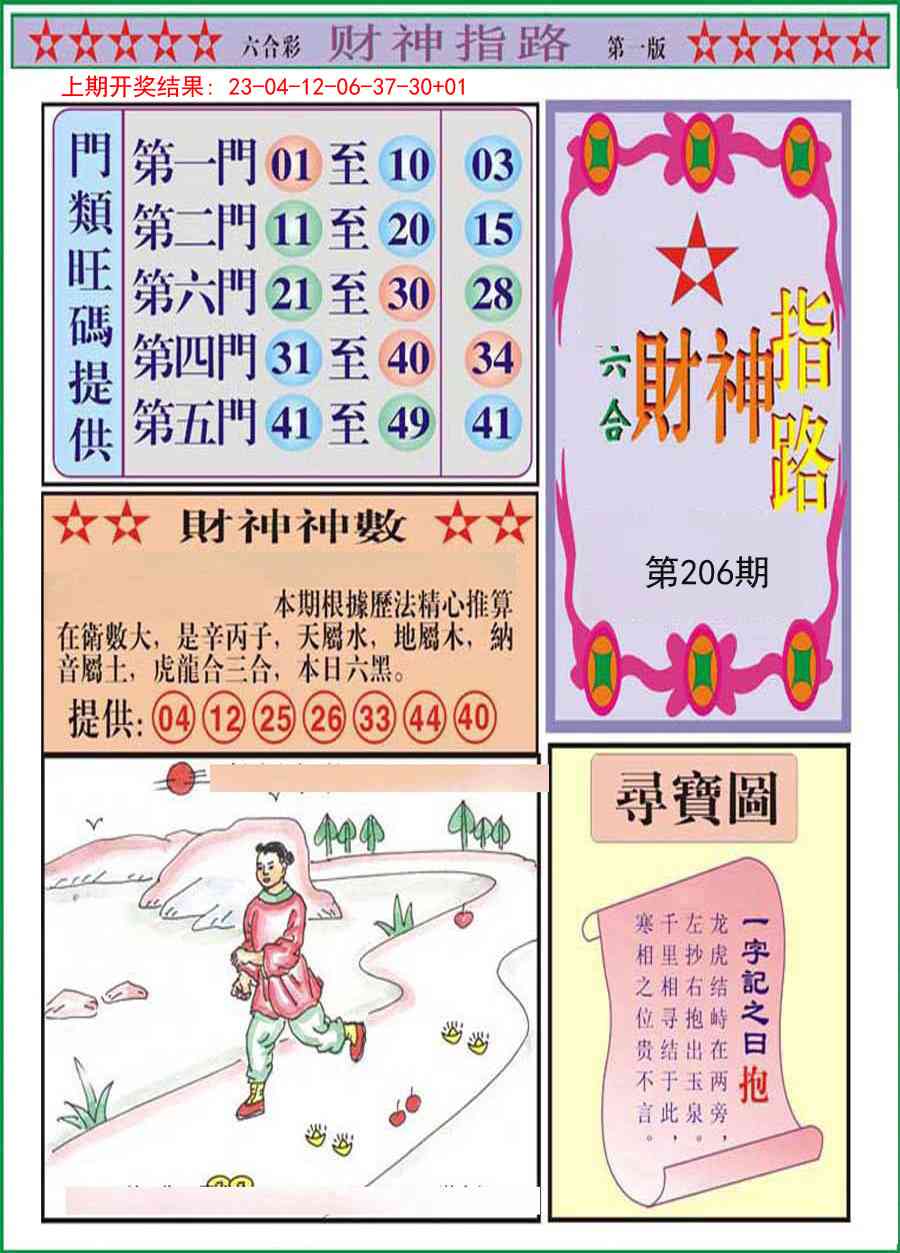 六合彩 财神指路 第一版
上期开奖结果：23-04-12-06-37-30+01
門類旺碼提供
第一門 01 至 10 03
第二門 11 至 20 15
第六門 21 至 30 28
第四門 31 至 40 34
第五門 41 至 49 41
六合 財神指路
第206期
財神神數
本期根據歷法精心推算
在術數大，是辛丙子，天屬水，地屬木，納
音屬土，虎龍合三合，本日六黑。
提供: 04 12 25 26 33 44 40
尋寶圖
一字記之曰抱
龙虎结峙在两旁，
左抄右抱出玉泉。
千里相寻结于此，
寒相之位贵不言。